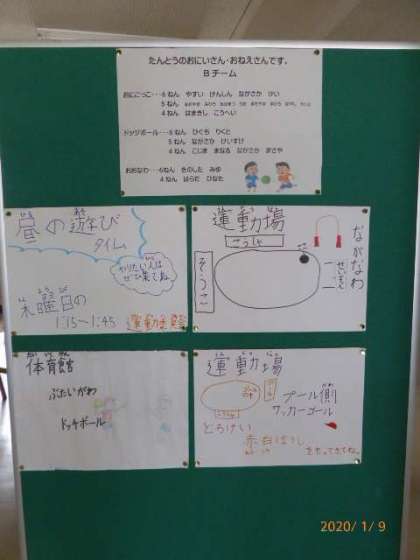 たんとうのおにいさん・おねえさんです。
Bチーム
おにごっこ・・・6ねん やすい けんしん ながさか けい
5ねん
4ねん はまきし こうへい
ドッジボール・・・6ねん ひぐち りくと
5ねん ながさか けいすけ
4ねん こじま まなる ながさか まさや
おおなわ・・・6ねん きのした みゆ
4ねん はらだ ひなた
昼の遊び
タイム
やりたい人は
ぜひ来てね。
木曜日の
1:15~1:45
運動場
こうしゃ
そうこ
ながなわ
体育館
ぶたいがわ
ドッチボール
運動場
プール側
サッカーゴール
とうけい
赤白ぼうし
をもってきてね。
2020/1/9